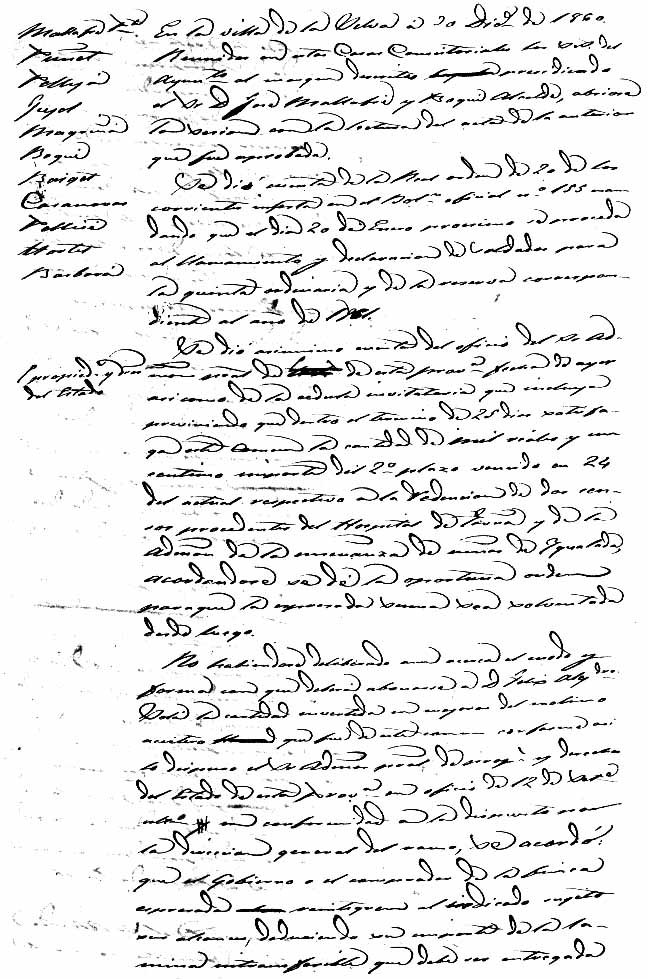 Mallafré
Pellejá
Pujol
Magriñá
Boqué
Barget
Casanovas
Pellisé
Hortet
Barberá
Propied.s y dros
del Estado
En la villa de la Selva á 30 Dic.e de 1860.
Reunidos en estas Casas Consistoriales los SS. del
Ayunt.o al margen presididos
el Sr D. José Mallafré y Boqué Alcalde, abriose
la sesion con la lectura del acta de la anterior
que fué aprobada.
Se dió cuenta de la Real orden de 20 de los
corrientes inserta en el Bol.n oficial n.o 155 man
dando que el dia 20 de Enero proximo se proceda
al llamamiento y declaracion de soldados para
la quinta ordinaria y de la reserva correspon-
diente al año de 1861.
Se dió asimismo cuenta del oficio del Sr. Ad-
de esta prov.a fecha de ayer
asi como de la cedula invitatoria que incluye
previniendo que dentro el termino de 25 dias satisfa-
ga este Comun la cantidad de mil reales y un
centimo importe del 2.o plazo vencido en 24
del actual respectivo a la redencion de dos cen-
sos procedentes del Hospital de y de la
Admon de la enseñanza de niños de Igualada,
acordandose se dé la oportuna orden
para que la espresada suma sea solventada
desde luego.
No habiendose deliberado aun acerca el modo y
forma con que deberá abonarse a D. Felix
la cantidad invertida en mejoras del molino
que fué de este comun conforme asi
lo dispuso el Sr Admor de prop.s y derechos
del Estado de esta Prov.a en oficio de 12 de
en conformidad a lo dispuesto por
la direccion general del ramo, se acordó:
que el Gobierno o el comprador de la finca
espresada reintegren al indicado sugeto
sus alcances, deduciendo su importe de la la-
mina intransferible que debe ser entregada